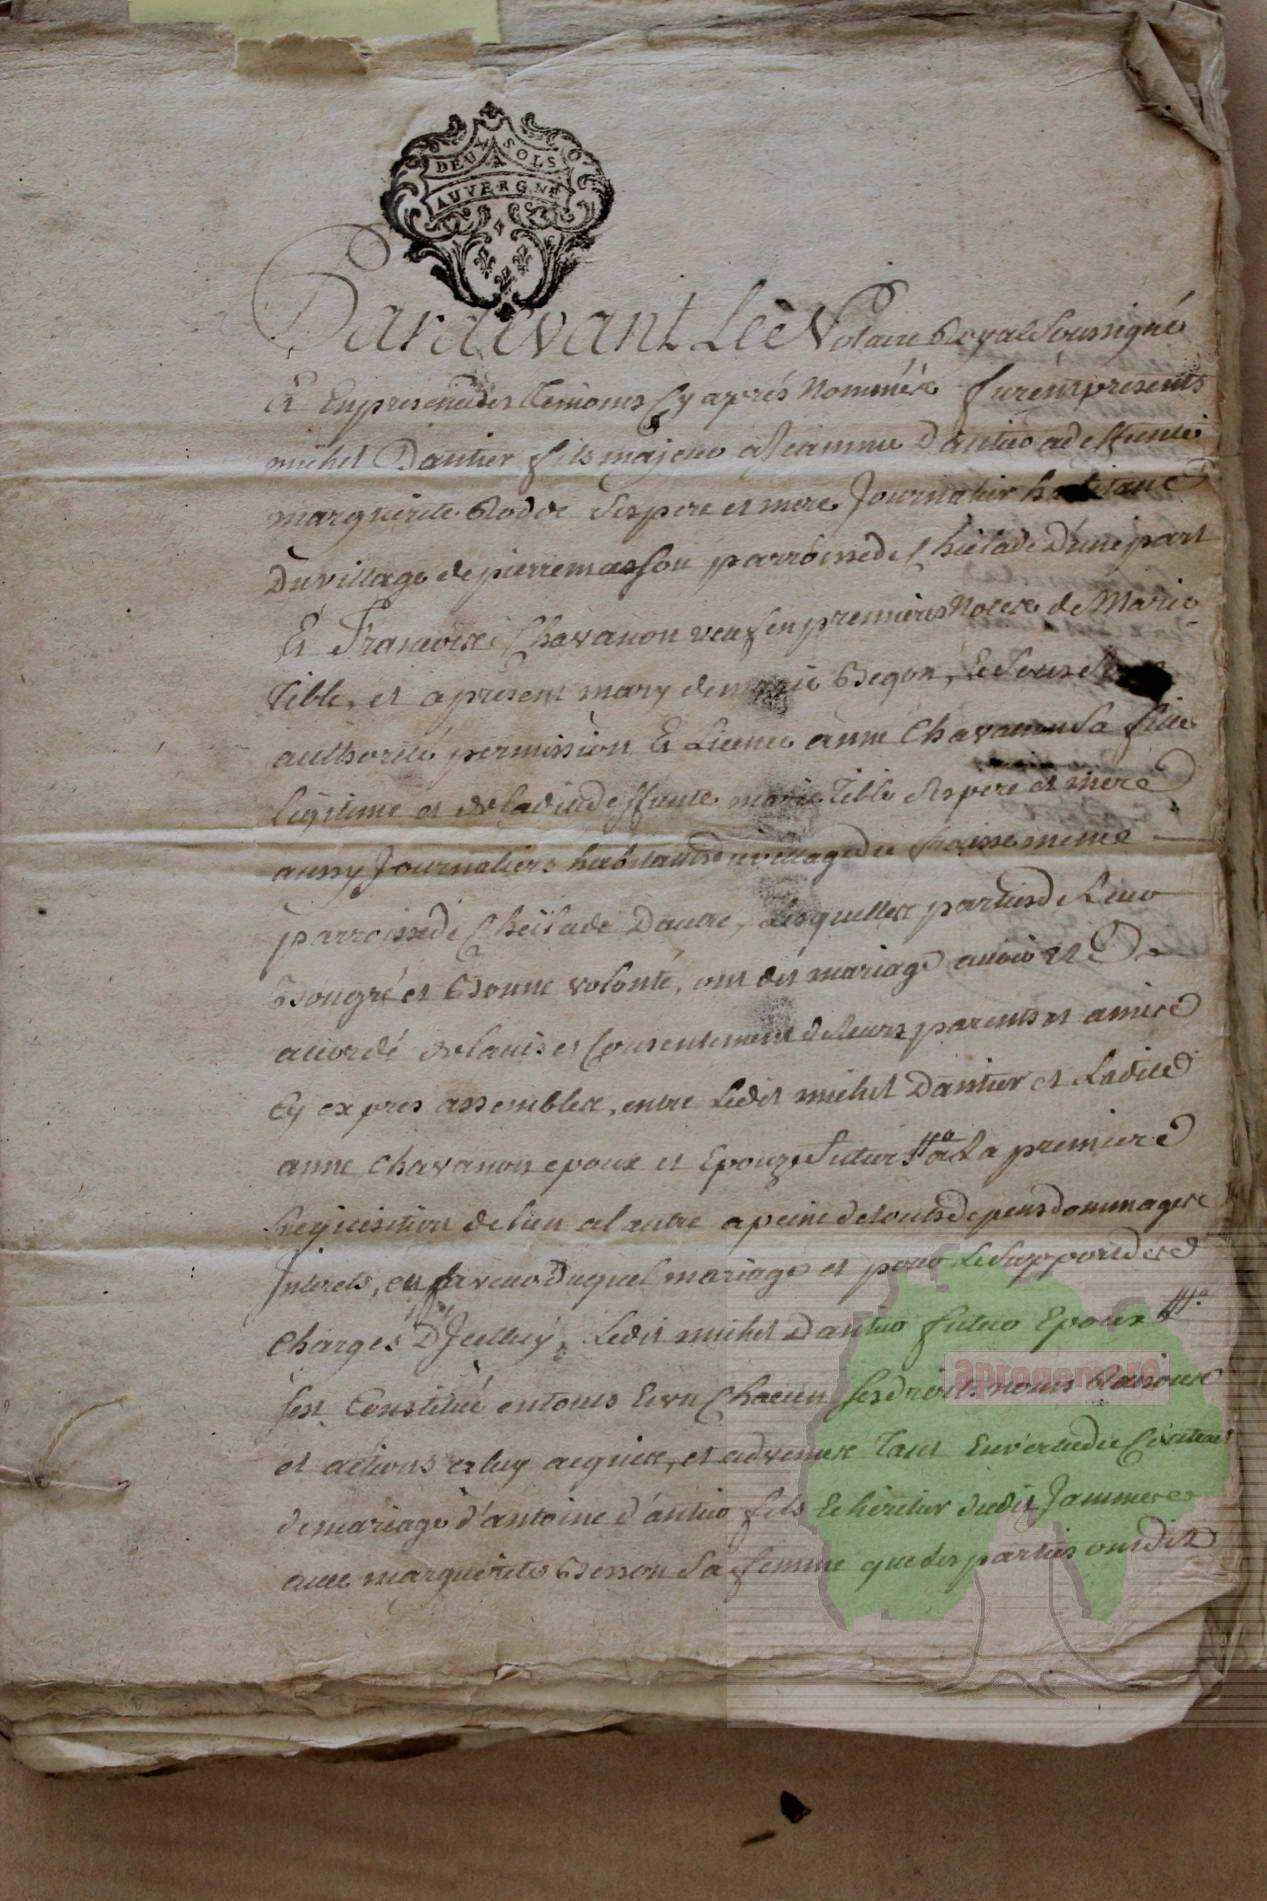 DEUX SOLS
AUVERGNE
Pardevant Le Notaire Royal Soussigné
Et En presence des temoins Cy aprés Nommés furent presents
michel Dantier fils majeur a Jeamme Dantier a deffunte
marguerite Rodde Ses pere et mere Journalier habitant
Du village de pierremasson parroisse de Cheilade D'une part
Et Francois Chavanon veuf en premieres Noces de Marie
Tible, et apresent mary de marie Begon, Et Sous Son
authorité permission Et Licence anne Chavanon Sa fille
Legitime et de ladite deffunte marie Tible Ses pere et mere
aussy Journaliers habitants du village du meme
parroisse de Cheilade Dautre, Lesquelles parties de Leur
Bongré et Bonne volonté, ont dit mariage avoir Eté
accordé de lavis et Consentement de leurs parents et amis
Cy expres assembles, entre Ledit michel Dantier et Ladite
anne Chavanon epoux et Epouze futurs a La premiere
Requisition de lun a lautre a peine de touts depens dommages
Interets, en faveur Duquel mariage et pour Le Support des
Charges D'Jcelluy, Ledit michel Dantier futur Epoux
sest Constitué en touts Et un Chacun ses droits noms Raisons
et actions a luy acquis, et advenus Tant En vertu du
de mariage d'antoine d'antier fils Et heritier dudit Jamme
avec marguerite Besson Sa femme que les parties ont dit
aprogemere